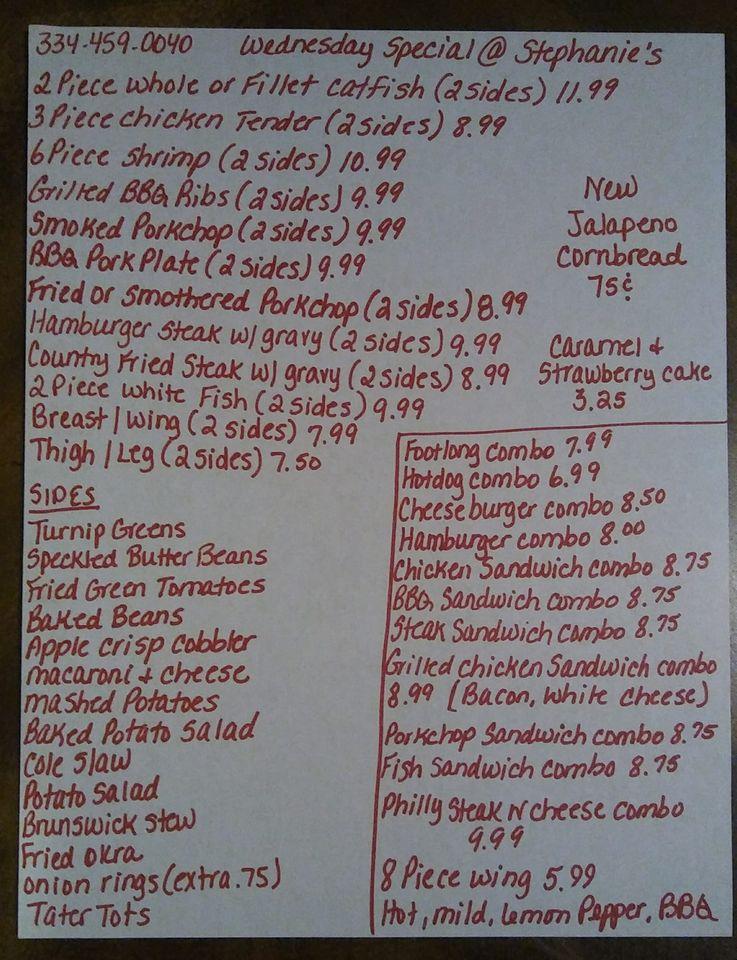 334-459-0040 Wednesday Special @ Stephanie's
2 Piece whole or Fillet catfish (2 sides) 11.99
3 Piece chicken Tender (2 sides) 8.99
6 Piece shrimp (2 sides) 10.99
Grilled BBQ Ribs (2 sides) 9.99
Smoked Porkchop (2 sides) 9.99
BBQ Pork Plate (2 sides) 9.99
Fried or Smothered Porkchop (2 sides) 8.99
Hamburger Steak w/ gravy (2 sides) 9.99
Country Fried Steak w/ gravy (2 sides) 8.99
2 Piece white Fish (2 sides) 9.99
Breast / wing (2 sides) 7.99
Thigh / Leg (2 sides) 7.50
New
Jalapeno
Cornbread
75¢
Caramel +
Strawberry cake
3.25
SIDES
Turnip Greens
Speckled Butter Beans
Fried Green Tomatoes
Baked Beans
Apple crisp cobbler
macaroni + cheese
mashed Potatoes
Baked Potato Salad
Cole Slaw
Potato Salad
Brunswick stew
Fried okra
onion rings (extra .75)
Tater Tots
Footlong combo 7.99
Hotdog combo 6.99
Cheese burger combo 8.50
Hamburger combo 8.00
Chicken Sandwich combo 8.75
BBQ Sandwich combo 8.75
Steak Sandwich combo 8.75
Grilled chicken Sandwich combo
8.99 [Bacon, white cheese)
Porkchop Sandwich combo 8.75
Fish Sandwich combo 8.75
Philly Steak N cheese combo
9.99
8 Piece wing 5.99
Hot, mild, Lemon Pepper, BBQ